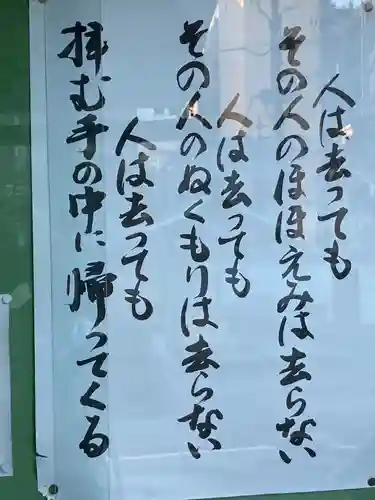 人は去っても
その人のほほえみは去らない
人は去っても
その人のぬくもりは去らない
人は去っても
拝む手の中に帰ってくる